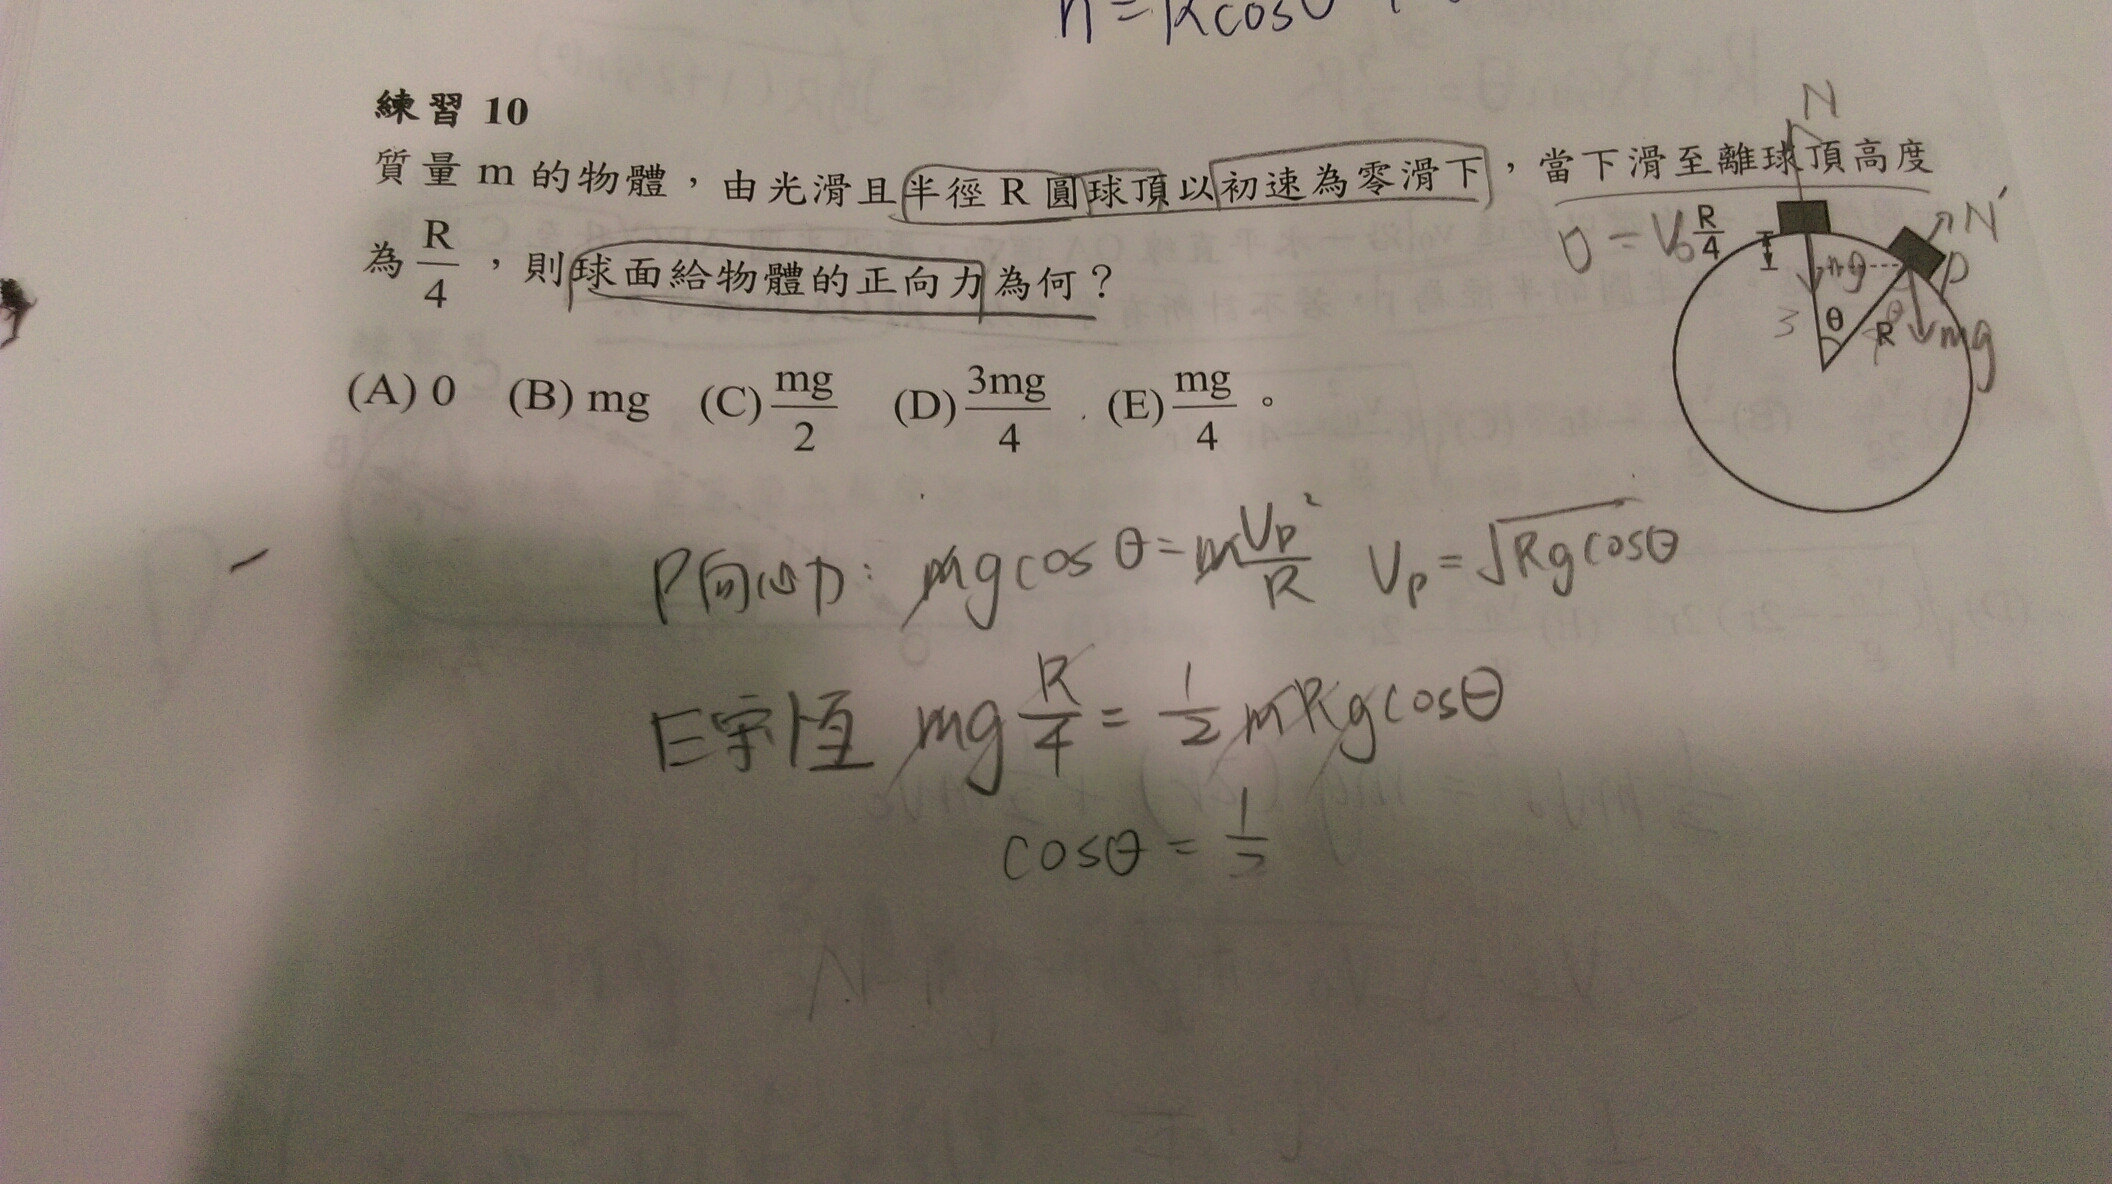 h = Rcosθ
練習 10
質量 m 的物體，由光滑且半徑 R 圓球頂以初速為零滑下，當下滑至離球頂高度
為 R/4，則球面給物體的正向力為何？
(A) 0 (B) mg (C) mg/2 (D) 3mg/4 (E) mg/4。
N
N'
0 = V₀
R/4
mg
P
3
θ
R
θ
mg
P向心力: mgcosθ = m Vp²/R Vp = √Rgcosθ
E守恆 mg R/4 = 1/2 mRgcosθ
cosθ = 1/2